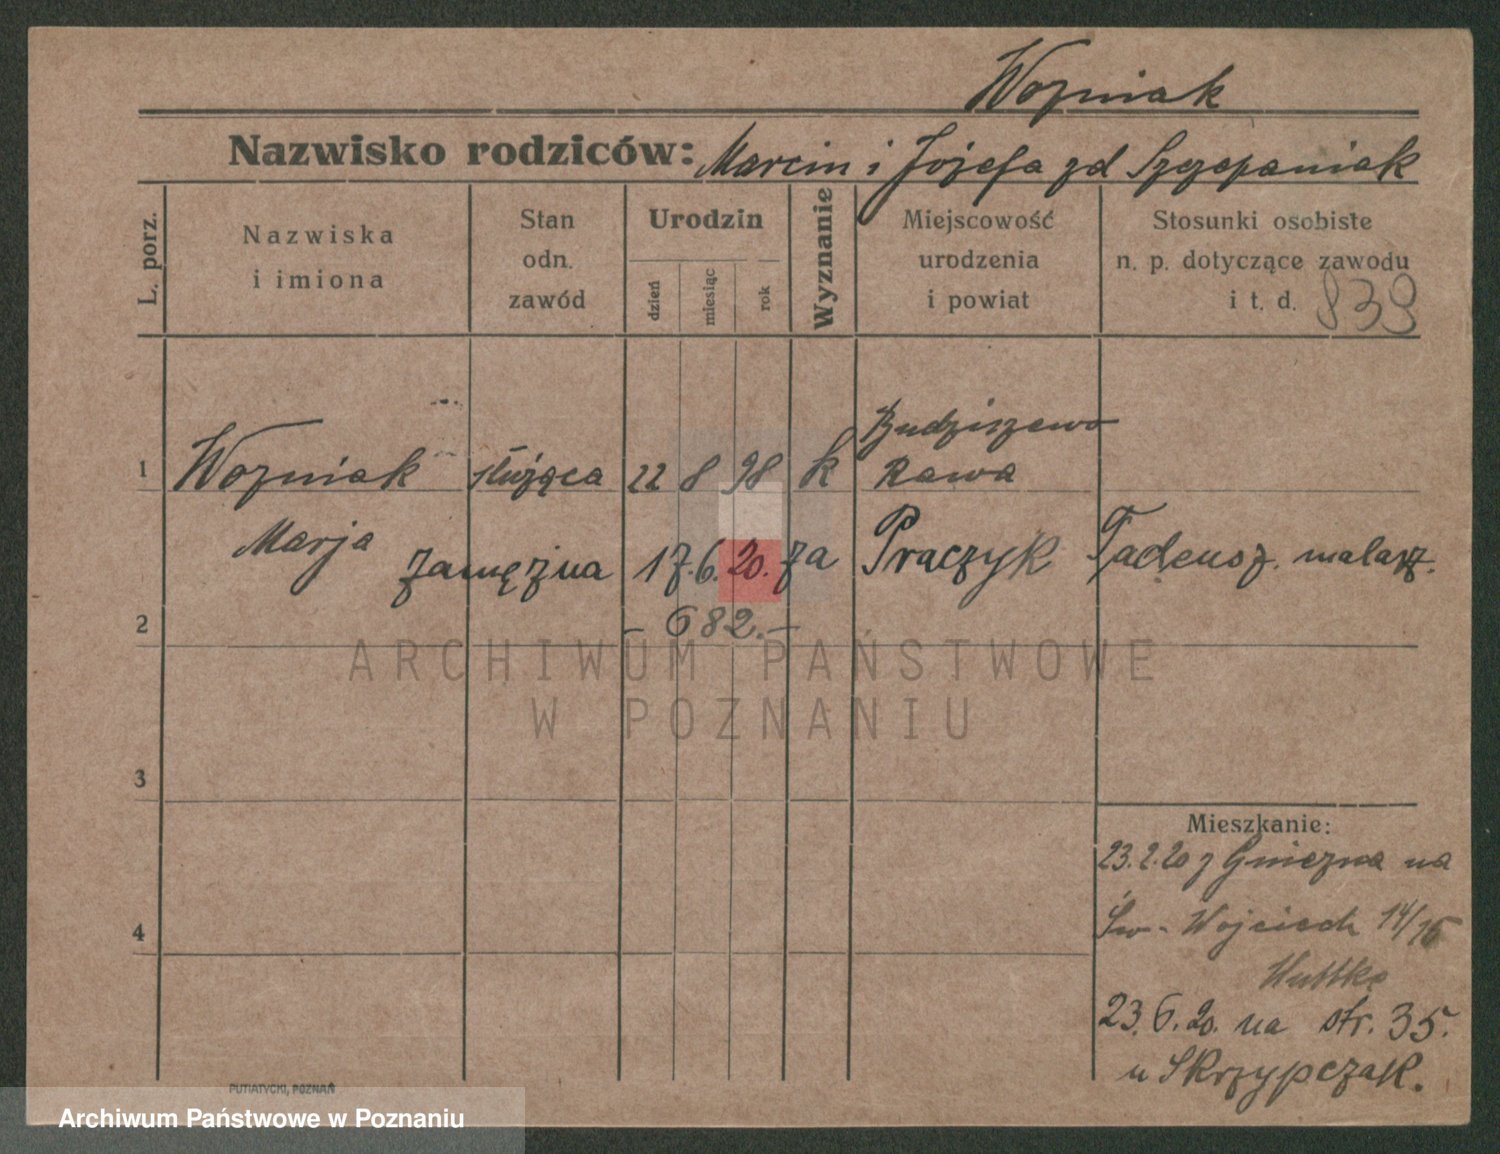 Wozniak
Nazwisko rodziców: Marcin i Józefa zd Szczepaniak
L. porz.
Nazwiska
i imiona
Stan
odn.
zawód
Urodzin
dzień
miesiąc
rok
Wyznanie
Miejscowość
urodzenia
i powiat
Stosunki osobiste
n. p. dotyczące zawodu
i t. d. 839
Budziszewo
1 Wozniak służąca 22 8 98 k Rawa
Marja
zamężna 17.6.20. za Praczyk Tadeusz. malarz.
2 - 682.-
ARCHIWUM PAŃSTWOWE
W POZNANIU
3
Mieszkanie:
23.2.20 z Gniezna na
4 Św. Wojciech 14/15
Wuttke
23.6.20. na str. 35.
u Skrzypczak.
PUTIATYCKI, POZNAŃ
Archiwum Państwowe w Poznaniu